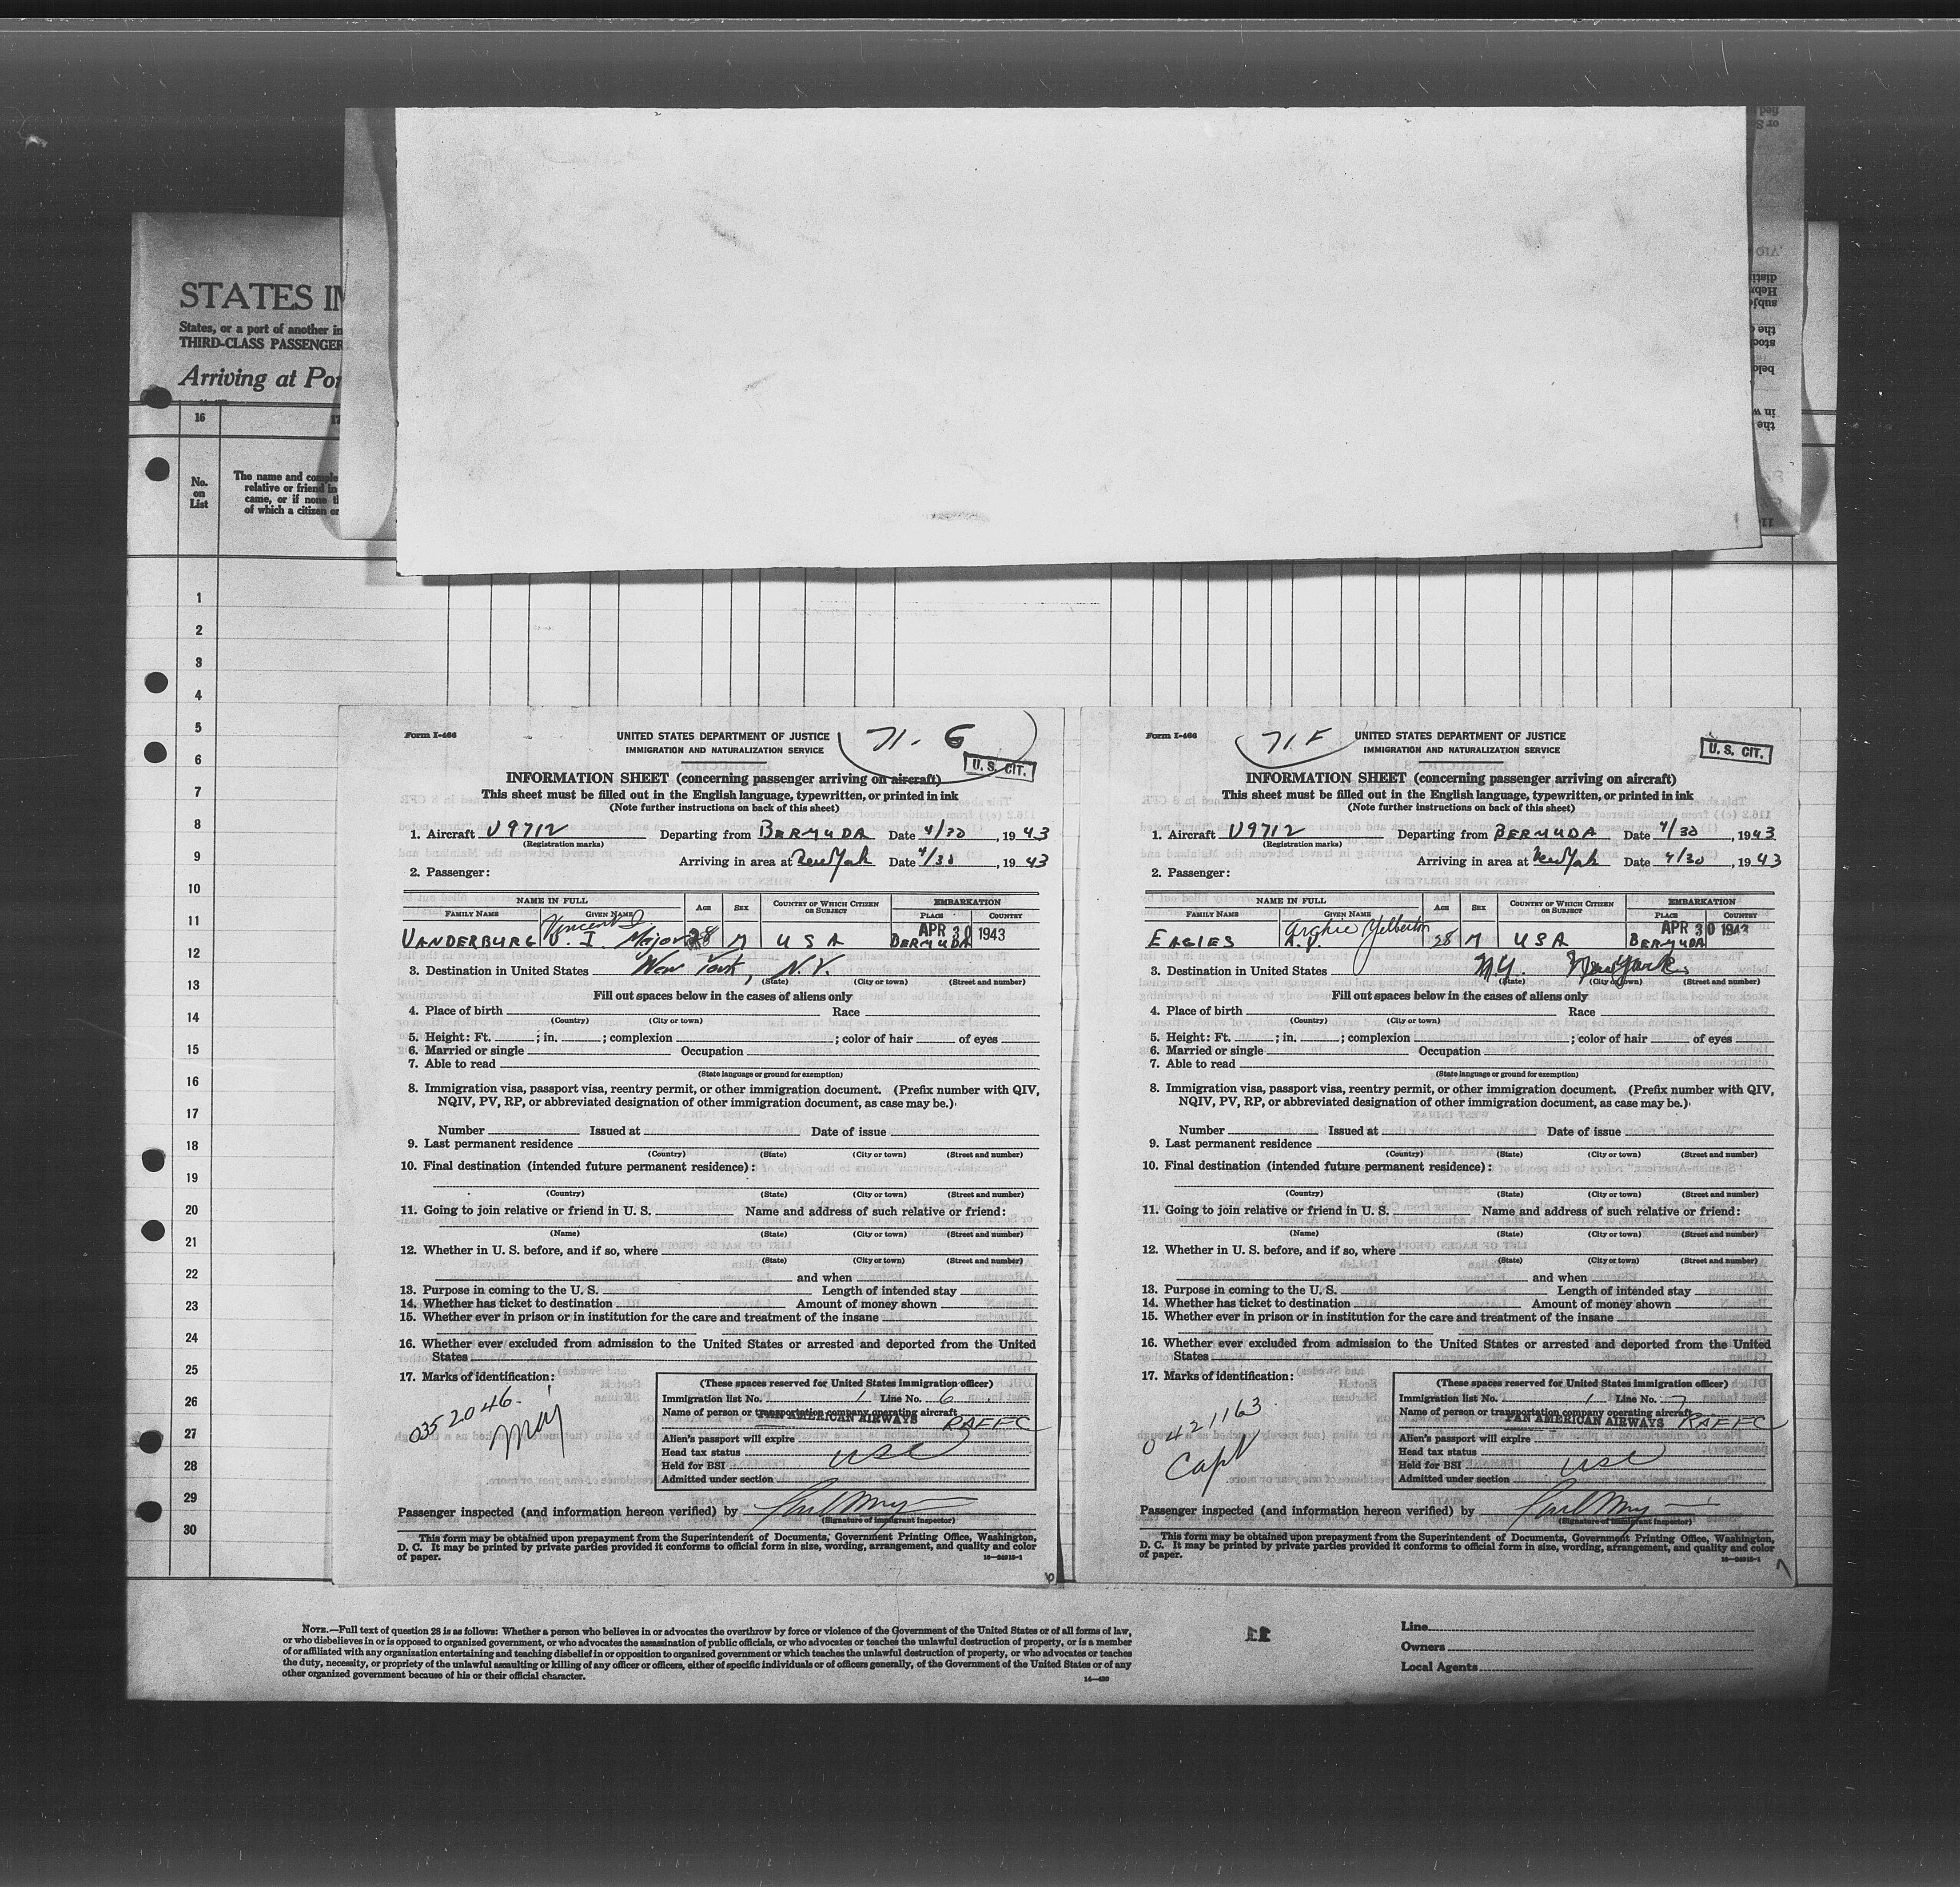 STATES
States, or a port of another
THIRD-CLASS PASSENGER
Arriving at
16
No.
on
List
The name and
relative or friend in
came, or if none
of which a citizen or
1
2
3
4
5
6
7
8
9
10
11
12
13
14
15
16
17
18
19
20
21
22
23
24
25
26
27
28
29
30
Form I-466
71-G
UNITED STATES DEPARTMENT OF JUSTICE
IMMIGRATION AND NATURALIZATION SERVICE
U. S. CIT.
INFORMATION SHEET (concerning passenger arriving on aircraft)
This sheet must be filled out in the English language, typewritten, or printed in ink
(Note further instructions on back of this sheet)
1. Aircraft U9712 Departing from BERMUDA Date 4/30, 1943
(Registration marks)
Arriving in area at New York Date 4/30, 1943
2. Passenger:
NAME IN FULL AGE SEX COUNTRY OF WHICH CITIZEN OR SUBJECT EMBARKATION
FAMILY NAME GIVEN NAME PLACE COUNTRY
Vincent I.
APR 30 1943
VANDERBURG V. I. Major 28 M USA BERMUDA
3. Destination in United States New York, N.Y.
(State) (City or town) (Street and number)
Fill out spaces below in the cases of aliens only
4. Place of birth Race
(Country) (City or town)
5. Height: Ft. ; in. ; complexion ; color of hair of eyes
6. Married or single Occupation
7. Able to read
(State language or ground for exemption)
8. Immigration visa, passport visa, reentry permit, or other immigration document. (Prefix number with QIV,
NQIV, PV, RP, or abbreviated designation of other immigration document, as case may be.)
Number Issued at Date of issue
9. Last permanent residence
(Country) (State) (City or town) (Street and number)
10. Final destination (intended future permanent residence):
(Country) (State) (City or town) (Street and number)
11. Going to join relative or friend in U. S. Name and address of such relative or friend:
(Name) (State) (City or town) (Street and number)
12. Whether in U. S. before, and if so, where
(State) (City or town) (Street and number)
and when
13. Purpose in coming to the U. S. Length of intended stay
14. Whether has ticket to destination Amount of money shown
15. Whether ever in prison or in institution for the care and treatment of the insane
16. Whether ever excluded from admission to the United States or arrested and deported from the United
States
17. Marks of identification:
0352046
Maj
(These spaces reserved for United States immigration officer)
Immigration list No. 1 Line No. 6
Name of person or transportation company operating aircraft
PAN AMERICAN AIRWAYS RAFFC
Alien's passport will expire
Head tax status USC
Held for BSI
Admitted under section
Passenger inspected (and information hereon verified) by
(Signature of immigrant inspector)
This form may be obtained upon prepayment from the Superintendent of Documents, Government Printing Office, Washington,
D. C. It may be printed by private parties provided it conforms to official form in size, wording, arrangement, and quality and color
of paper.
Form I-466
71F
UNITED STATES DEPARTMENT OF JUSTICE
IMMIGRATION AND NATURALIZATION SERVICE
U. S. CIT.
INFORMATION SHEET (concerning passenger arriving on aircraft)
This sheet must be filled out in the English language, typewritten, or printed in ink
(Note further instructions on back of this sheet)
1. Aircraft U9712 Departing from BERMUDA Date 4/30, 1943
(Registration marks)
Arriving in area at New York Date 4/30, 1943
2. Passenger:
NAME IN FULL AGE SEX COUNTRY OF WHICH CITIZEN OR SUBJECT EMBARKATION
FAMILY NAME GIVEN NAME PLACE COUNTRY
Archie Yelberton
APR 30 1943
EAGLES A. Y. 28 M USA BERMUDA
3. Destination in United States N.Y. New York
(State) (City or town) (Street and number)
Fill out spaces below in the cases of aliens only
4. Place of birth Race
(Country) (City or town)
5. Height: Ft. ; in. ; complexion ; color of hair of eyes
6. Married or single Occupation
7. Able to read
(State language or ground for exemption)
8. Immigration visa, passport visa, reentry permit, or other immigration document. (Prefix number with QIV,
NQIV, PV, RP, or abbreviated designation of other immigration document, as case may be.)
Number Issued at Date of issue
9. Last permanent residence
(Country) (State) (City or town) (Street and number)
10. Final destination (intended future permanent residence):
(Country) (State) (City or town) (Street and number)
11. Going to join relative or friend in U. S. Name and address of such relative or friend:
(Name) (State) (City or town) (Street and number)
12. Whether in U. S. before, and if so, where
(State) (City or town) (Street and number)
and when
13. Purpose in coming to the U. S. Length of intended stay
14. Whether has ticket to destination Amount of money shown
15. Whether ever in prison or in institution for the care and treatment of the insane
16. Whether ever excluded from admission to the United States or arrested and deported from the United
States
17. Marks of identification:
0421163
Capt
(These spaces reserved for United States immigration officer)
Immigration list No. 1 Line No. 7
Name of person or transportation company operating aircraft
PAN AMERICAN AIRWAYS RAFFC
Alien's passport will expire
Head tax status USC
Held for BSI
Admitted under section
Passenger inspected (and information hereon verified) by
(Signature of immigrant inspector)
This form may be obtained upon prepayment from the Superintendent of Documents, Government Printing Office, Washington,
D. C. It may be printed by private parties provided it conforms to official form in size, wording, arrangement, and quality and color
of paper.
NOTE.—Full text of question 28 is as follows: Whether a person who believes in or advocates the overthrow by force or violence of the Government of the United States or of all forms of law,
or who disbelieves in or is opposed to organized government, or who advocates the assassination of public officials, or who advocates or teaches the unlawful destruction of property, or is a member
of or affiliated with any organization entertaining and teaching disbelief in or opposition to organized government or which teaches the unlawful destruction of property, or who advocates or teaches
the duty, necessity, or propriety of the unlawful assaulting or killing of any officer or officers, either of specific individuals or of officers generally, of the Government of the United States or of any
other organized government because of his or their official character.
Line
Owners
Local Agents